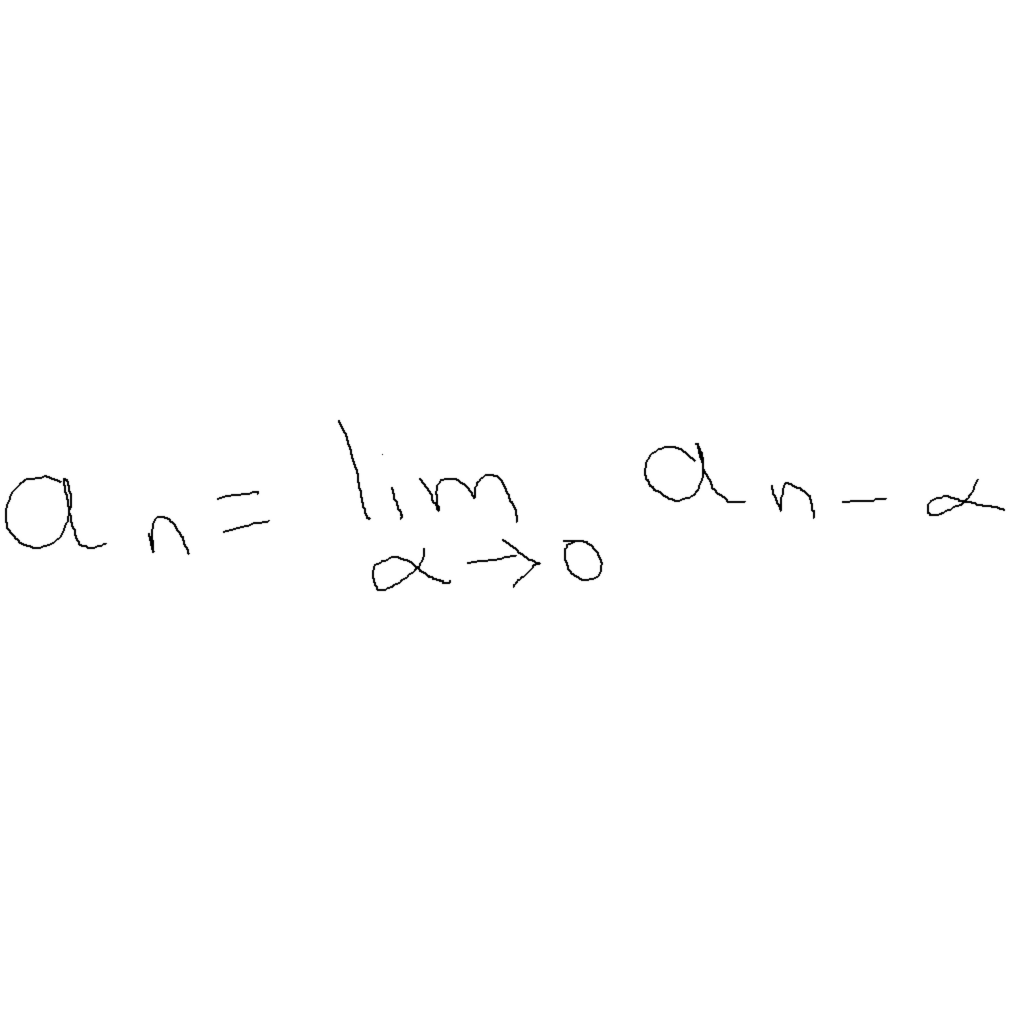 a_n = lim_{α→0} a_{n-α}